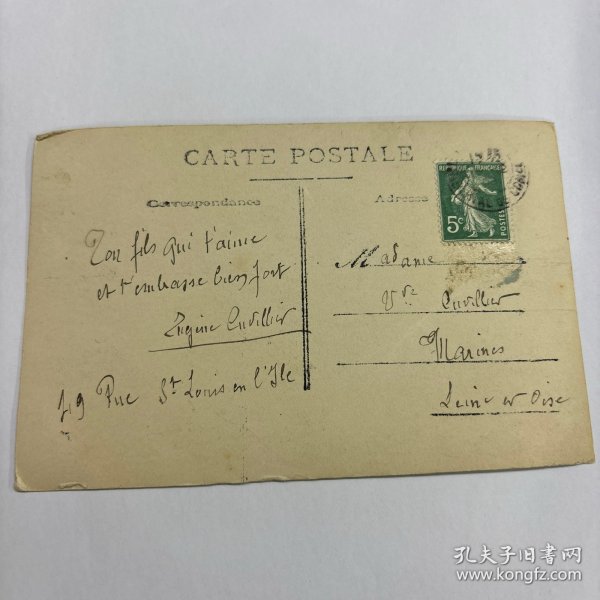 CARTE POSTALE
Correspondance
Adresse
REPUBLIQUE FRANÇAISE
5c
POSTES
Ton fils qui t'aime
et t'embrasse bien fort
Eugène Cuvillier
49 Rue St Louis en l'Ile
Madame
Vve Cuvillier
Marines
Seine et Oise
孔夫子旧书网
www.kongfz.com